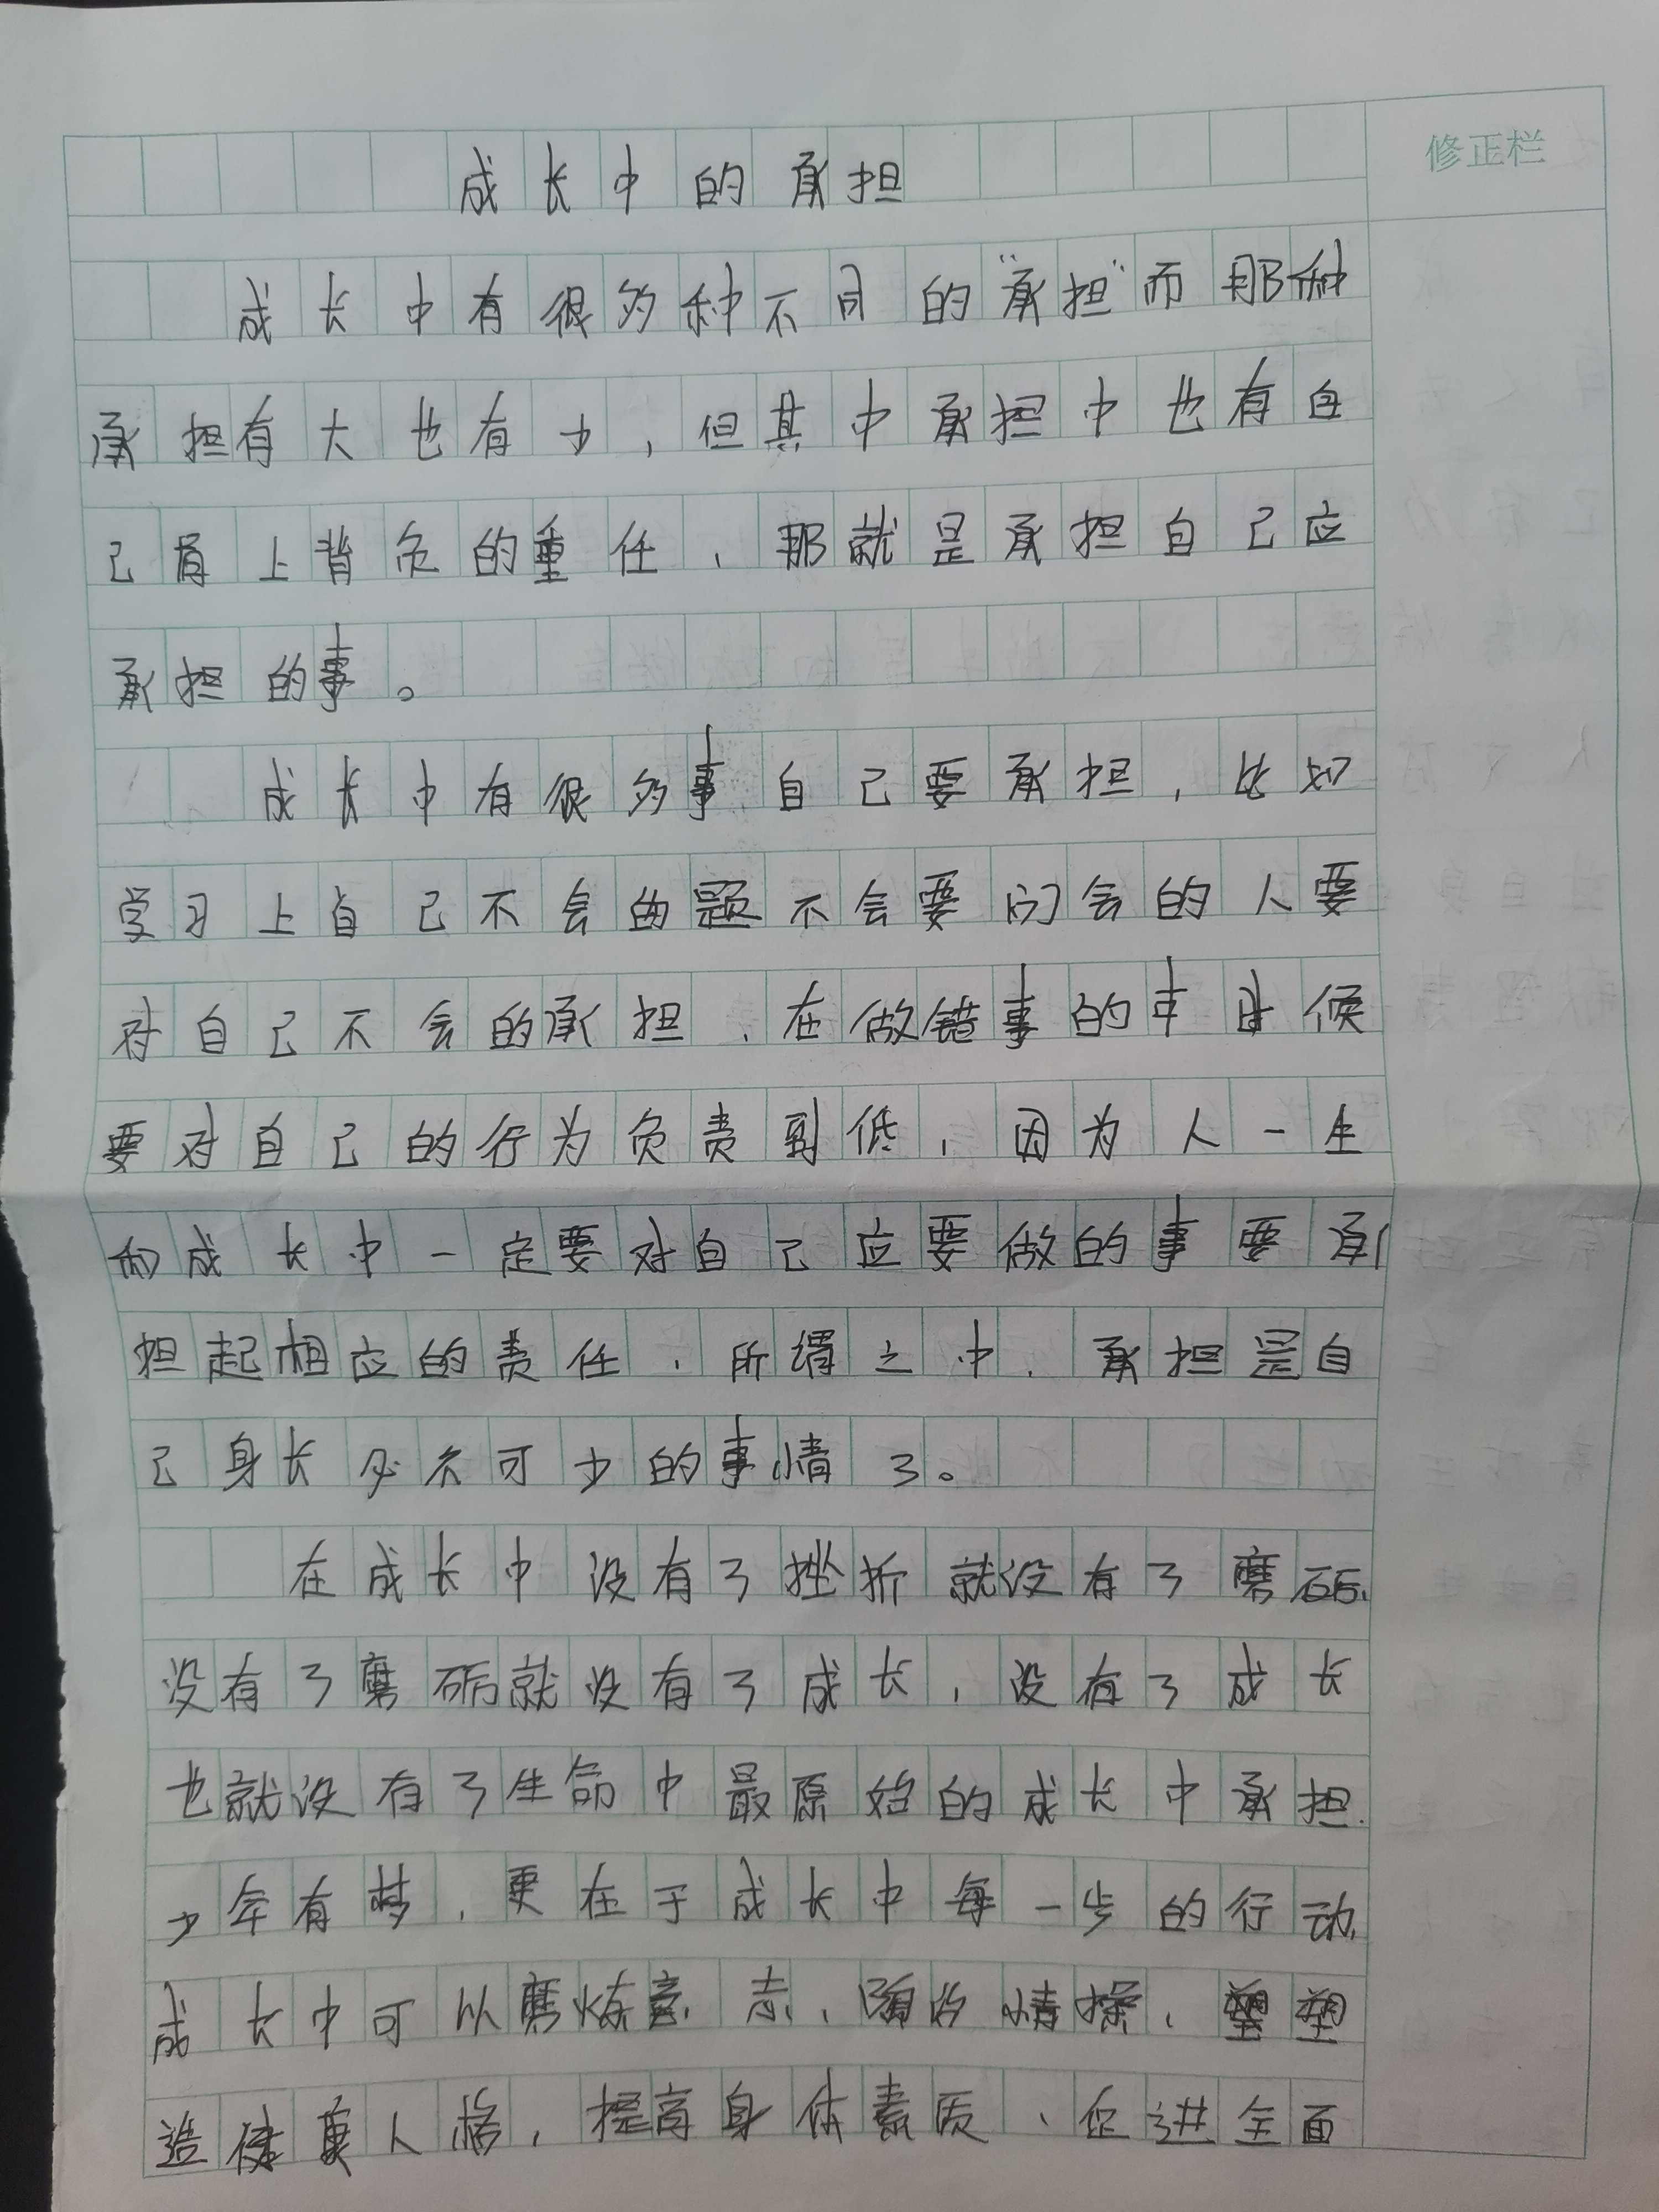 修正栏
成长中的承担
成长中有很多种不同的“承担”而那种
承担有大也有少，但其中承担中也有自
己肩上背负的重任，那就是承担自己应
承担的事。
成长中有很多事自己要承担，比如
学习上自己不会的题不会要问会的人要
对自己不会的承担，在做错事的时候
要对自己的行为负责到低，因为人一生
和成长中一定要对自己应要做的事要承
担起相应的责任，所谓之中，承担是自
己身长必不可少的事情了。
在成长中没有了挫折就没有了磨砺，
没有了磨砺就没有了成长，没有了成长
也就没有了生命中最原始的成长中承担.
少年有梦，更在于成长中每一步的行动，
成长中可以磨炼意志、陶冶情操，塑
造健康人格，提高身体素质、促进全面